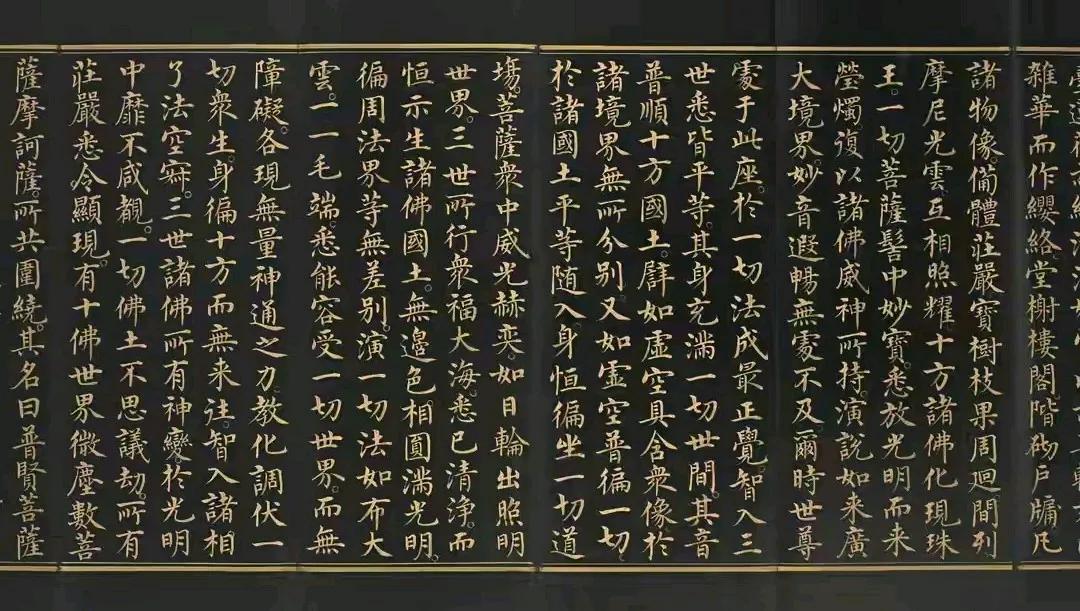 雜華而作纓絡。堂榭樓閣。階砌户牖。凡
諸物像。備體莊嚴。寶樹枝果。周迴間列。
摩尼光雲。互相照耀。十方諸佛。化現珠
王。一切菩薩髻中妙寶。悉放光明。而来
瑩燭。復以諸佛威神所持。演說如来廣
大境界。妙音遐暢。無處不及。爾時世尊
處于此座。於一切法。成最正覺。智入三
世。悉皆平等。其身充滿一切世間。其音
普順十方國土。譬如虛空具含衆像。於
諸境界。無所分別。又如虛空普徧一切。
於諸國土。平等随入。身恒徧坐一切道
塲。菩薩衆中。威光赫奕。如日輪出。照明
世界。三世所行。衆福大海。悉已清淨。而
恒示生諸佛國土。無邊色相。圓滿光明。
徧周法界。等無差別。演一切法。如布大
雲。一一毛端。悉能容受一切世界。而無
障礙。各現無量神通之力。教化調伏一
切衆生。身徧十方。而無来往。智入諸相。
了法空寂。三世諸佛所有神變。於光明
中。靡不咸覩。一切佛土。不思議劫。所有
莊嚴。悉令顯現。有十佛世界微塵數菩
薩摩訶薩。所共圍繞。其名曰普賢菩薩